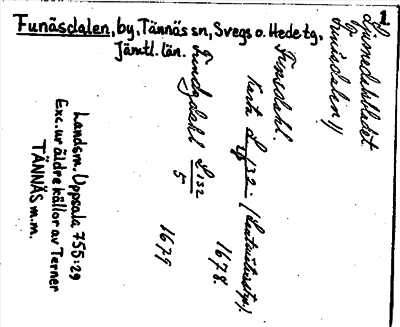 1
Funäsdalen, by, Tännäs sn, Svegs o. Hede tg,
Jämtl. län.
Ljusnedalsbladet
Funisdalen //
Finsdahl.
Karta L 132
1678.
Fundzdahl L 132
5
1679
Landsm. Uppsala 755:29
Exc. ur äldre källor av Terner
TÄNNÄS m.m.